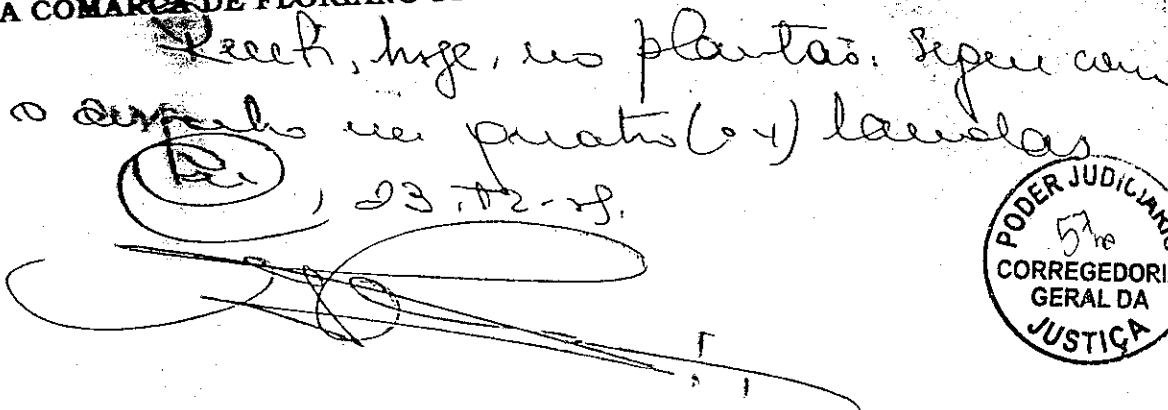 A COMARCA DE FLORIANO
Recebi, hoje, no plantão. Segue com
o despacho em quatro (04) laudas
, 23.12.
PODER JUDICIÁRIO
CORREGEDORI
GERAL DA
JUSTIÇA